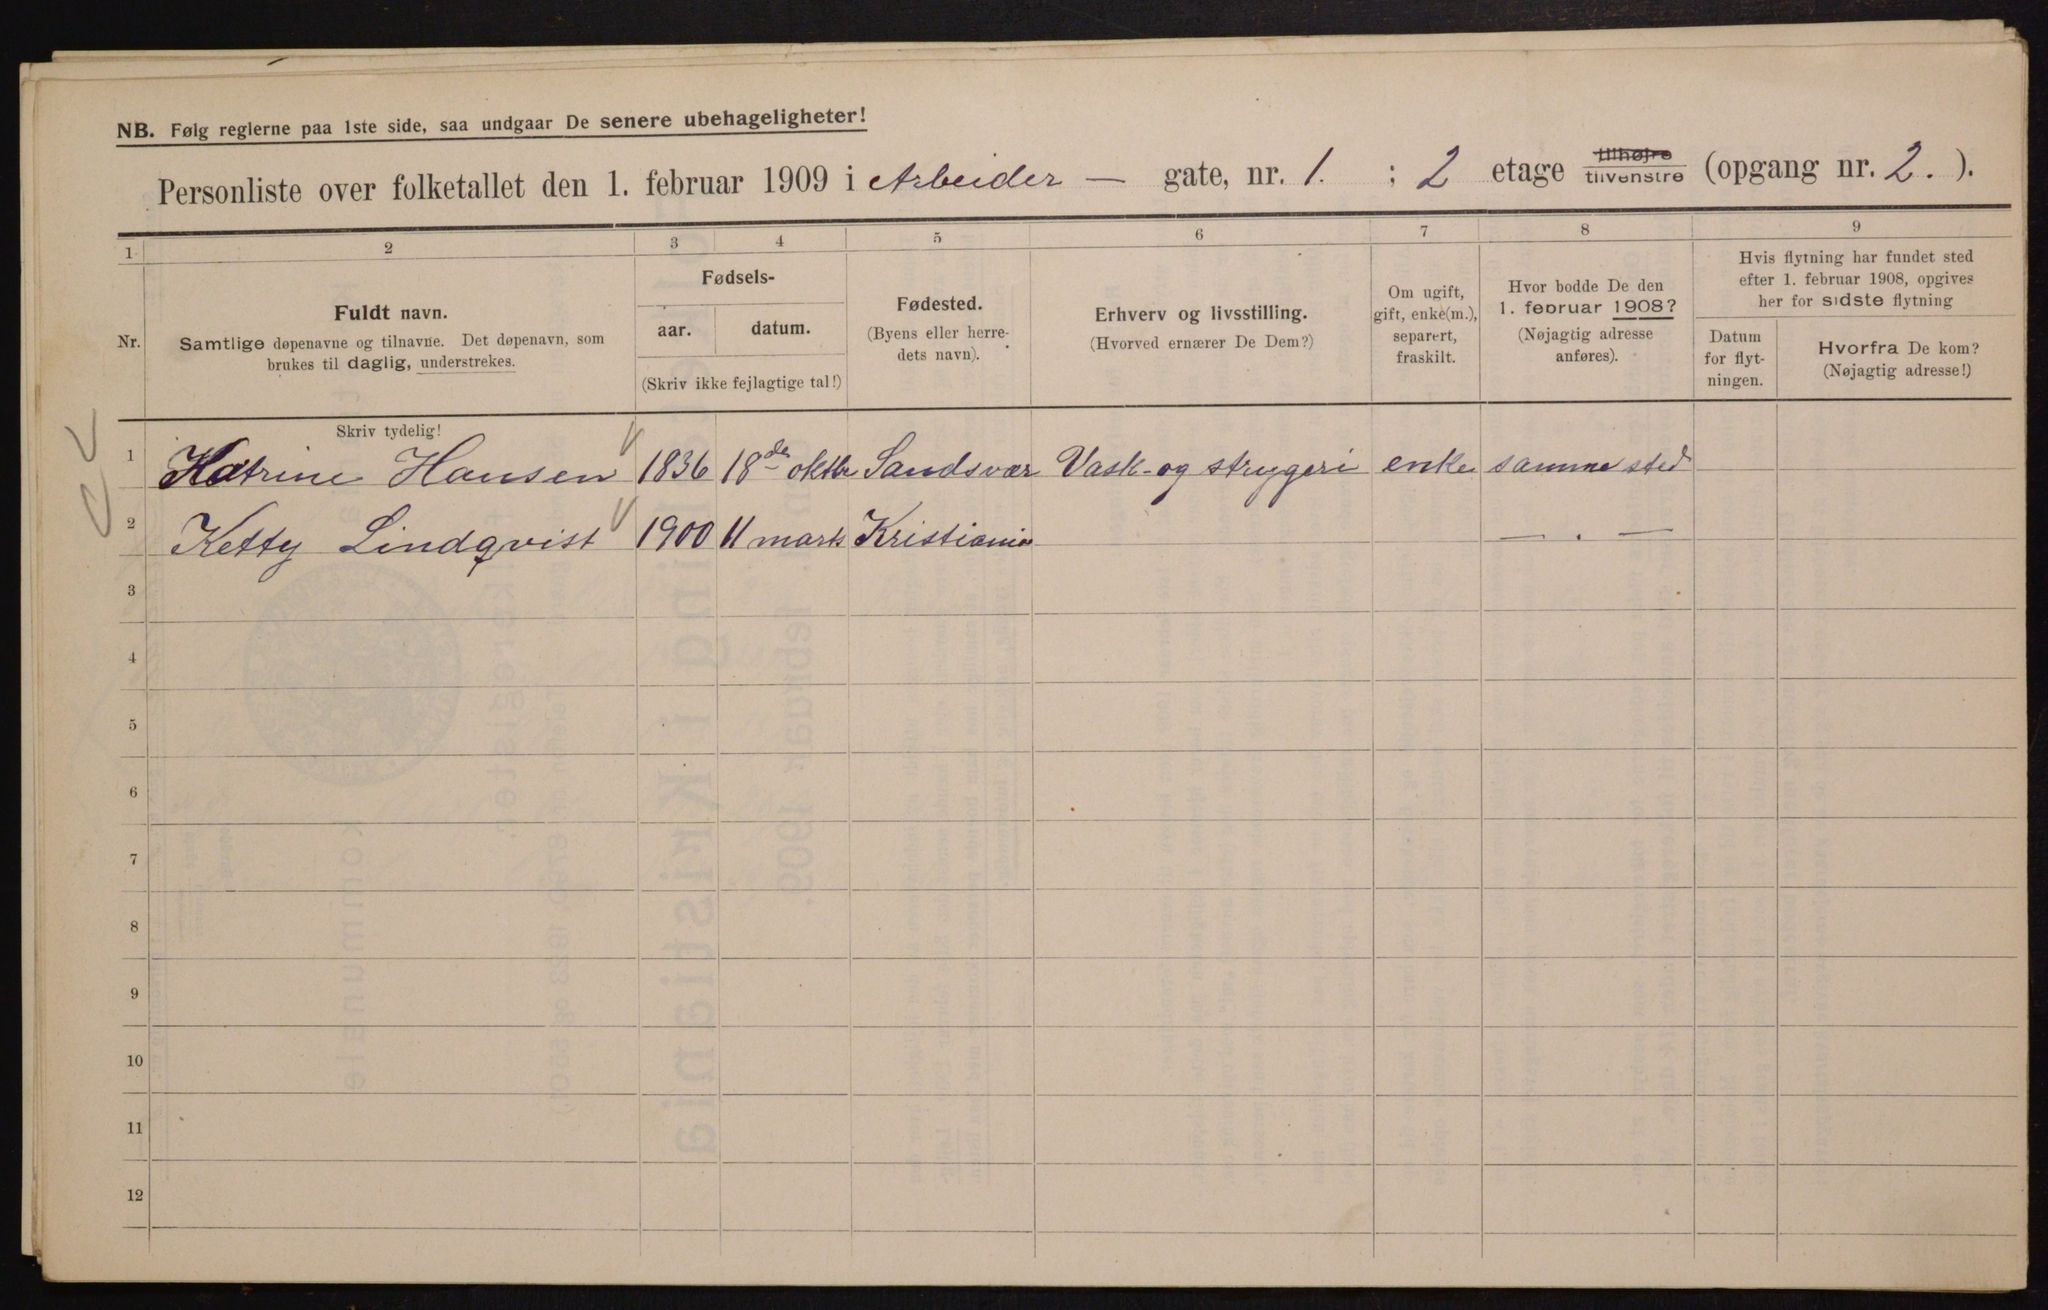 NB. Følg reglerne paa 1ste side, saa undgaar De senere ubehageligheter!
Personliste over folketallet den 1. februar 1909 i Arbeider — gate, nr. 1. ; 2 etage tilhøjre tilvenstre (opgang nr. 2. ).
1 2 3 4 5 6 7 8 9
Nr.
Fuldt navn.
Samtlige døpenavne og tilnavne. Det døpenavn, som
brukes til daglig, understrekes.
Skriv tydelig!
Fødsels-
aar. datum.
(Skriv ikke fejlagtige tal!)
Fødested.
(Byens eller herre-
dets navn).
Erhverv og livsstilling.
(Hvorved ernærer De Dem?)
Om ugift,
gift, enke(m.),
separert,
fraskilt.
Hvor bodde De den
1. februar 1908?
(Nøjagtig adresse
anføres).
Hvis flytning har fundet sted
efter 1. februar 1908, opgives
her for sidste flytning
Datum
for flyt-
ningen.
Hvorfra De kom?
(Nøjagtig adresse!)
1 Katrine Hansen 1836 18de oktbr Sandsvær Vask- og strygeri enke samme sted
2 Ketty Lindqvist 1900 11 marts Kristiania — . —
3
4
5
6
7
8
9
10
11
12